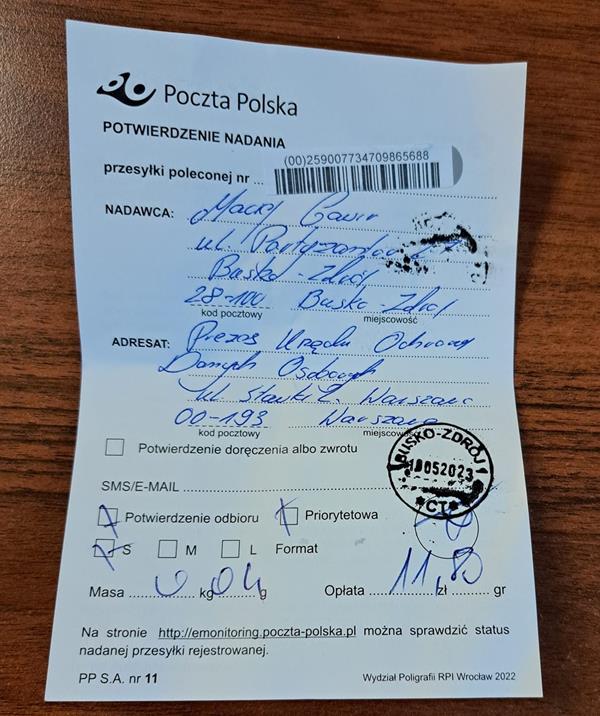 Poczta Polska
POTWIERDZENIE NADANIA
(00)259007734709865688
przesyłki poleconej nr
NADAWCA: Maciej Gawin
ul. Partyzantów
Busko-Zdrój
28-100 Busko-Zdrój
kod pocztowy miejscowość
ADRESAT: Prezes Urzędu Ochrony
Danych Osobowych
ul Stawki 2. Warszawa
00-193 Warszawa
kod pocztowy miejscowość
Potwierdzenie doręczenia albo zwrotu
BUSKO-ZDRÓJ 1
10052023
*CT*
SMS/E-MAIL
Potwierdzenie odbioru Priorytetowa
S M L Format
Masa 0 kg 04 g Opłata 11,80 zł gr
Na stronie http://emonitoring.poczta-polska.pl można sprawdzić status
nadanej przesyłki rejestrowanej.
PP S.A. nr 11 Wydział Poligrafii RPI Wrocław 2022